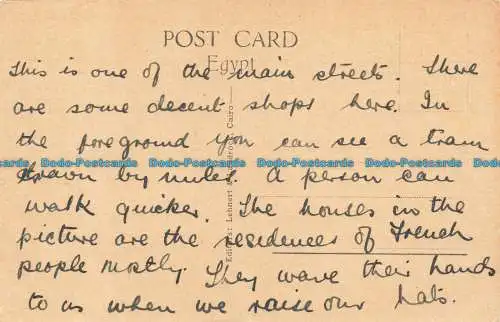 POST CARD
Egypt
This is one of the main streets. There
are some decent shops here. In
the foreground you can see a tram
drawn by mules. A person can
walk quicker. The houses in the
picture are the residences of French
people mostly. They wave their hands
to us when we raise our hats.
Editors: Lehnert & Landrock, Cairo
Dodo-Postcards Dodo-Postcards Dodo-Postcards Dodo-Postcards